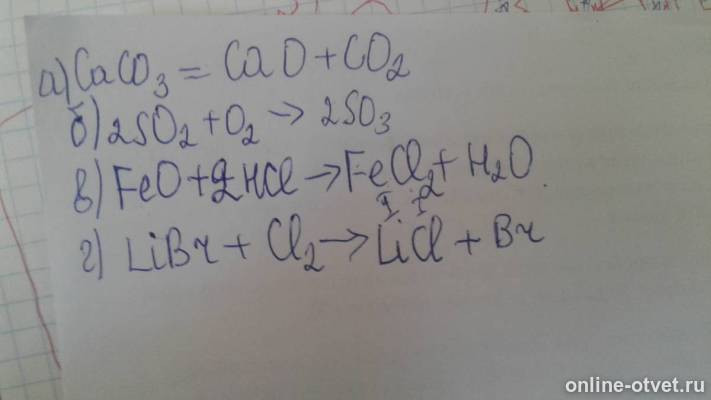 а) CaCO3 = CaO + CO2
б) 2SO2 + O2 → 2SO3
в) FeO + 2HCl → FeCl2 + H2O.
I I
г) LiBr + Cl2 → LiCl + Br
online-otvet.ru